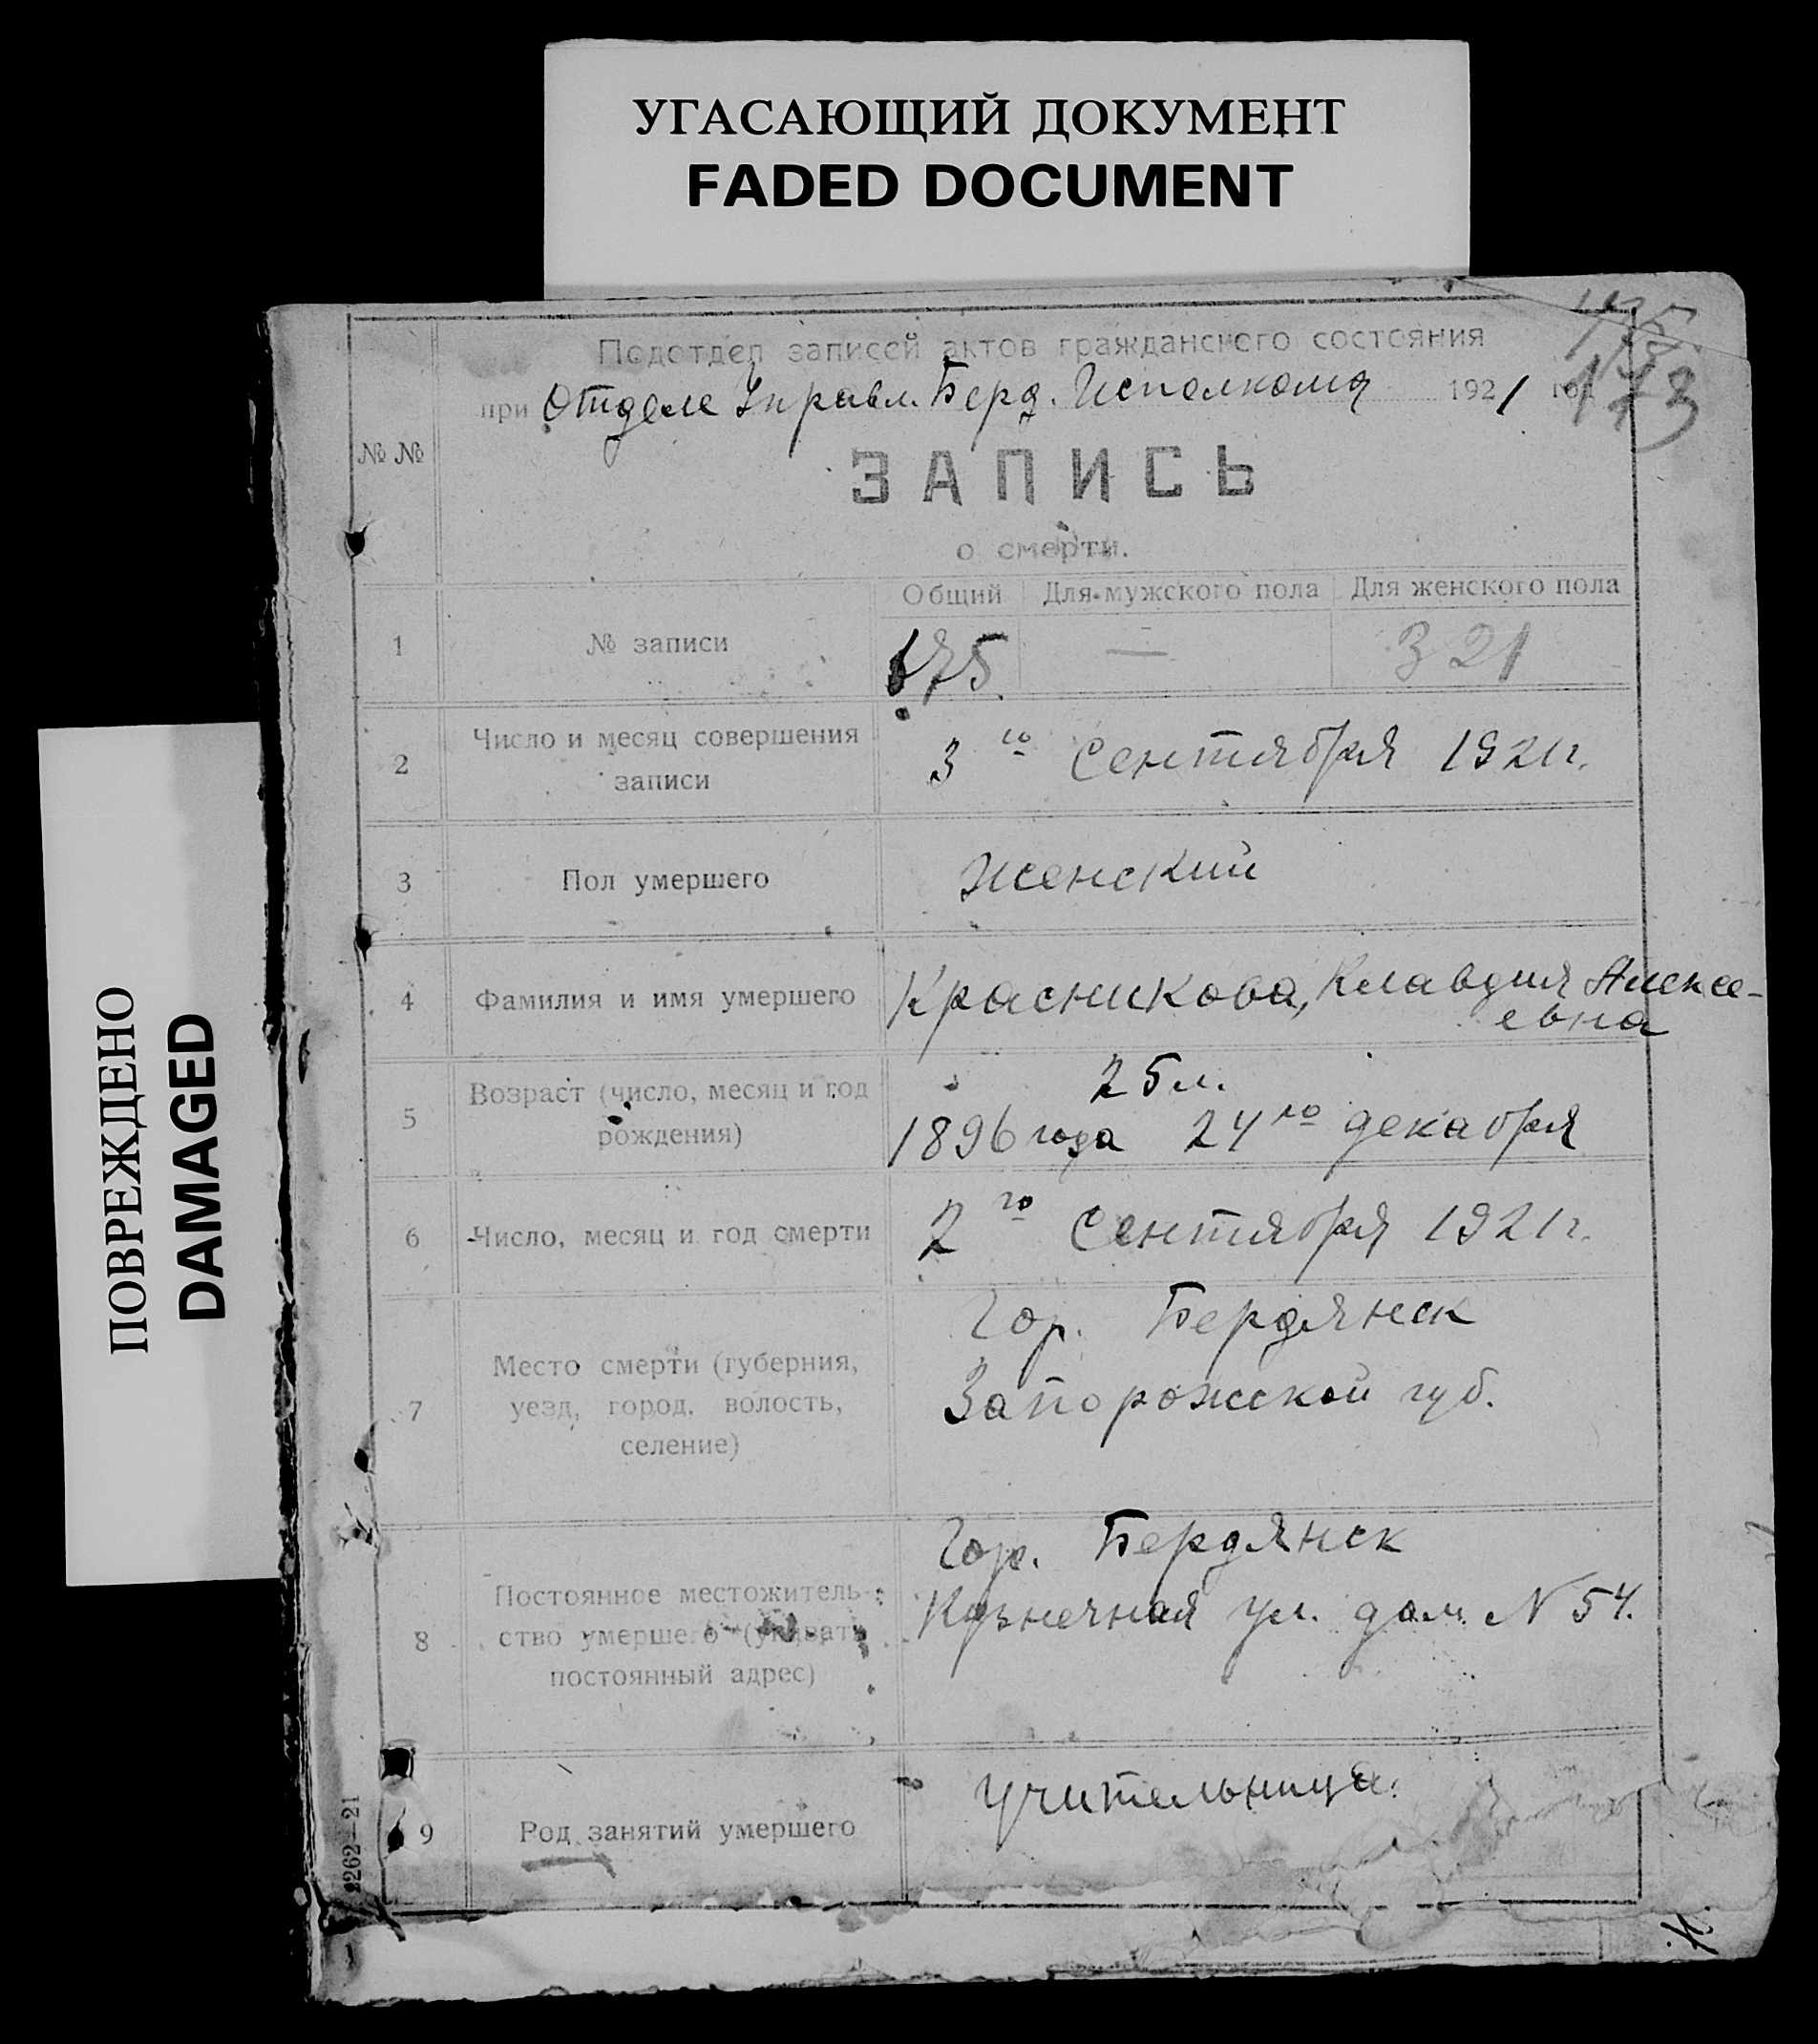 УГАСАЮЩИЙ ДОКУМЕНТ
FADED DOCUMENT
ПОВРЕЖДЕНО
DAMAGED
Подотдел записей актов гражданского состояния
при Отделе Управл. Берд. Исполкома 1921 год
173
№ №
ЗАПИСЬ
о смерти.
Общий Для мужского пола Для женского пола
1 № записи 675 — 321
2 Число и месяц совершения
записи
3го Сентября 1921 г.
3 Пол умершего Женский
4 Фамилия и имя умершего Красникова, Клавдия Алексе-
евна
5 Возраст (число, месяц и год
рождения)
25 л.
1896 года 24го декабря
6 Число, месяц и год смерти 2го Сентября 1921 г.
7 Место смерти (губерния,
уезд, город, волость,
селение)
Гор. Бердянск
Запорожской губ.
8 Постоянное местожитель-
ство умершего (указать
постоянный адрес)
Гор. Бердянск
Кузнечная ул. дом. N 54.
9 Род занятий умершего Учительница.
2262—21